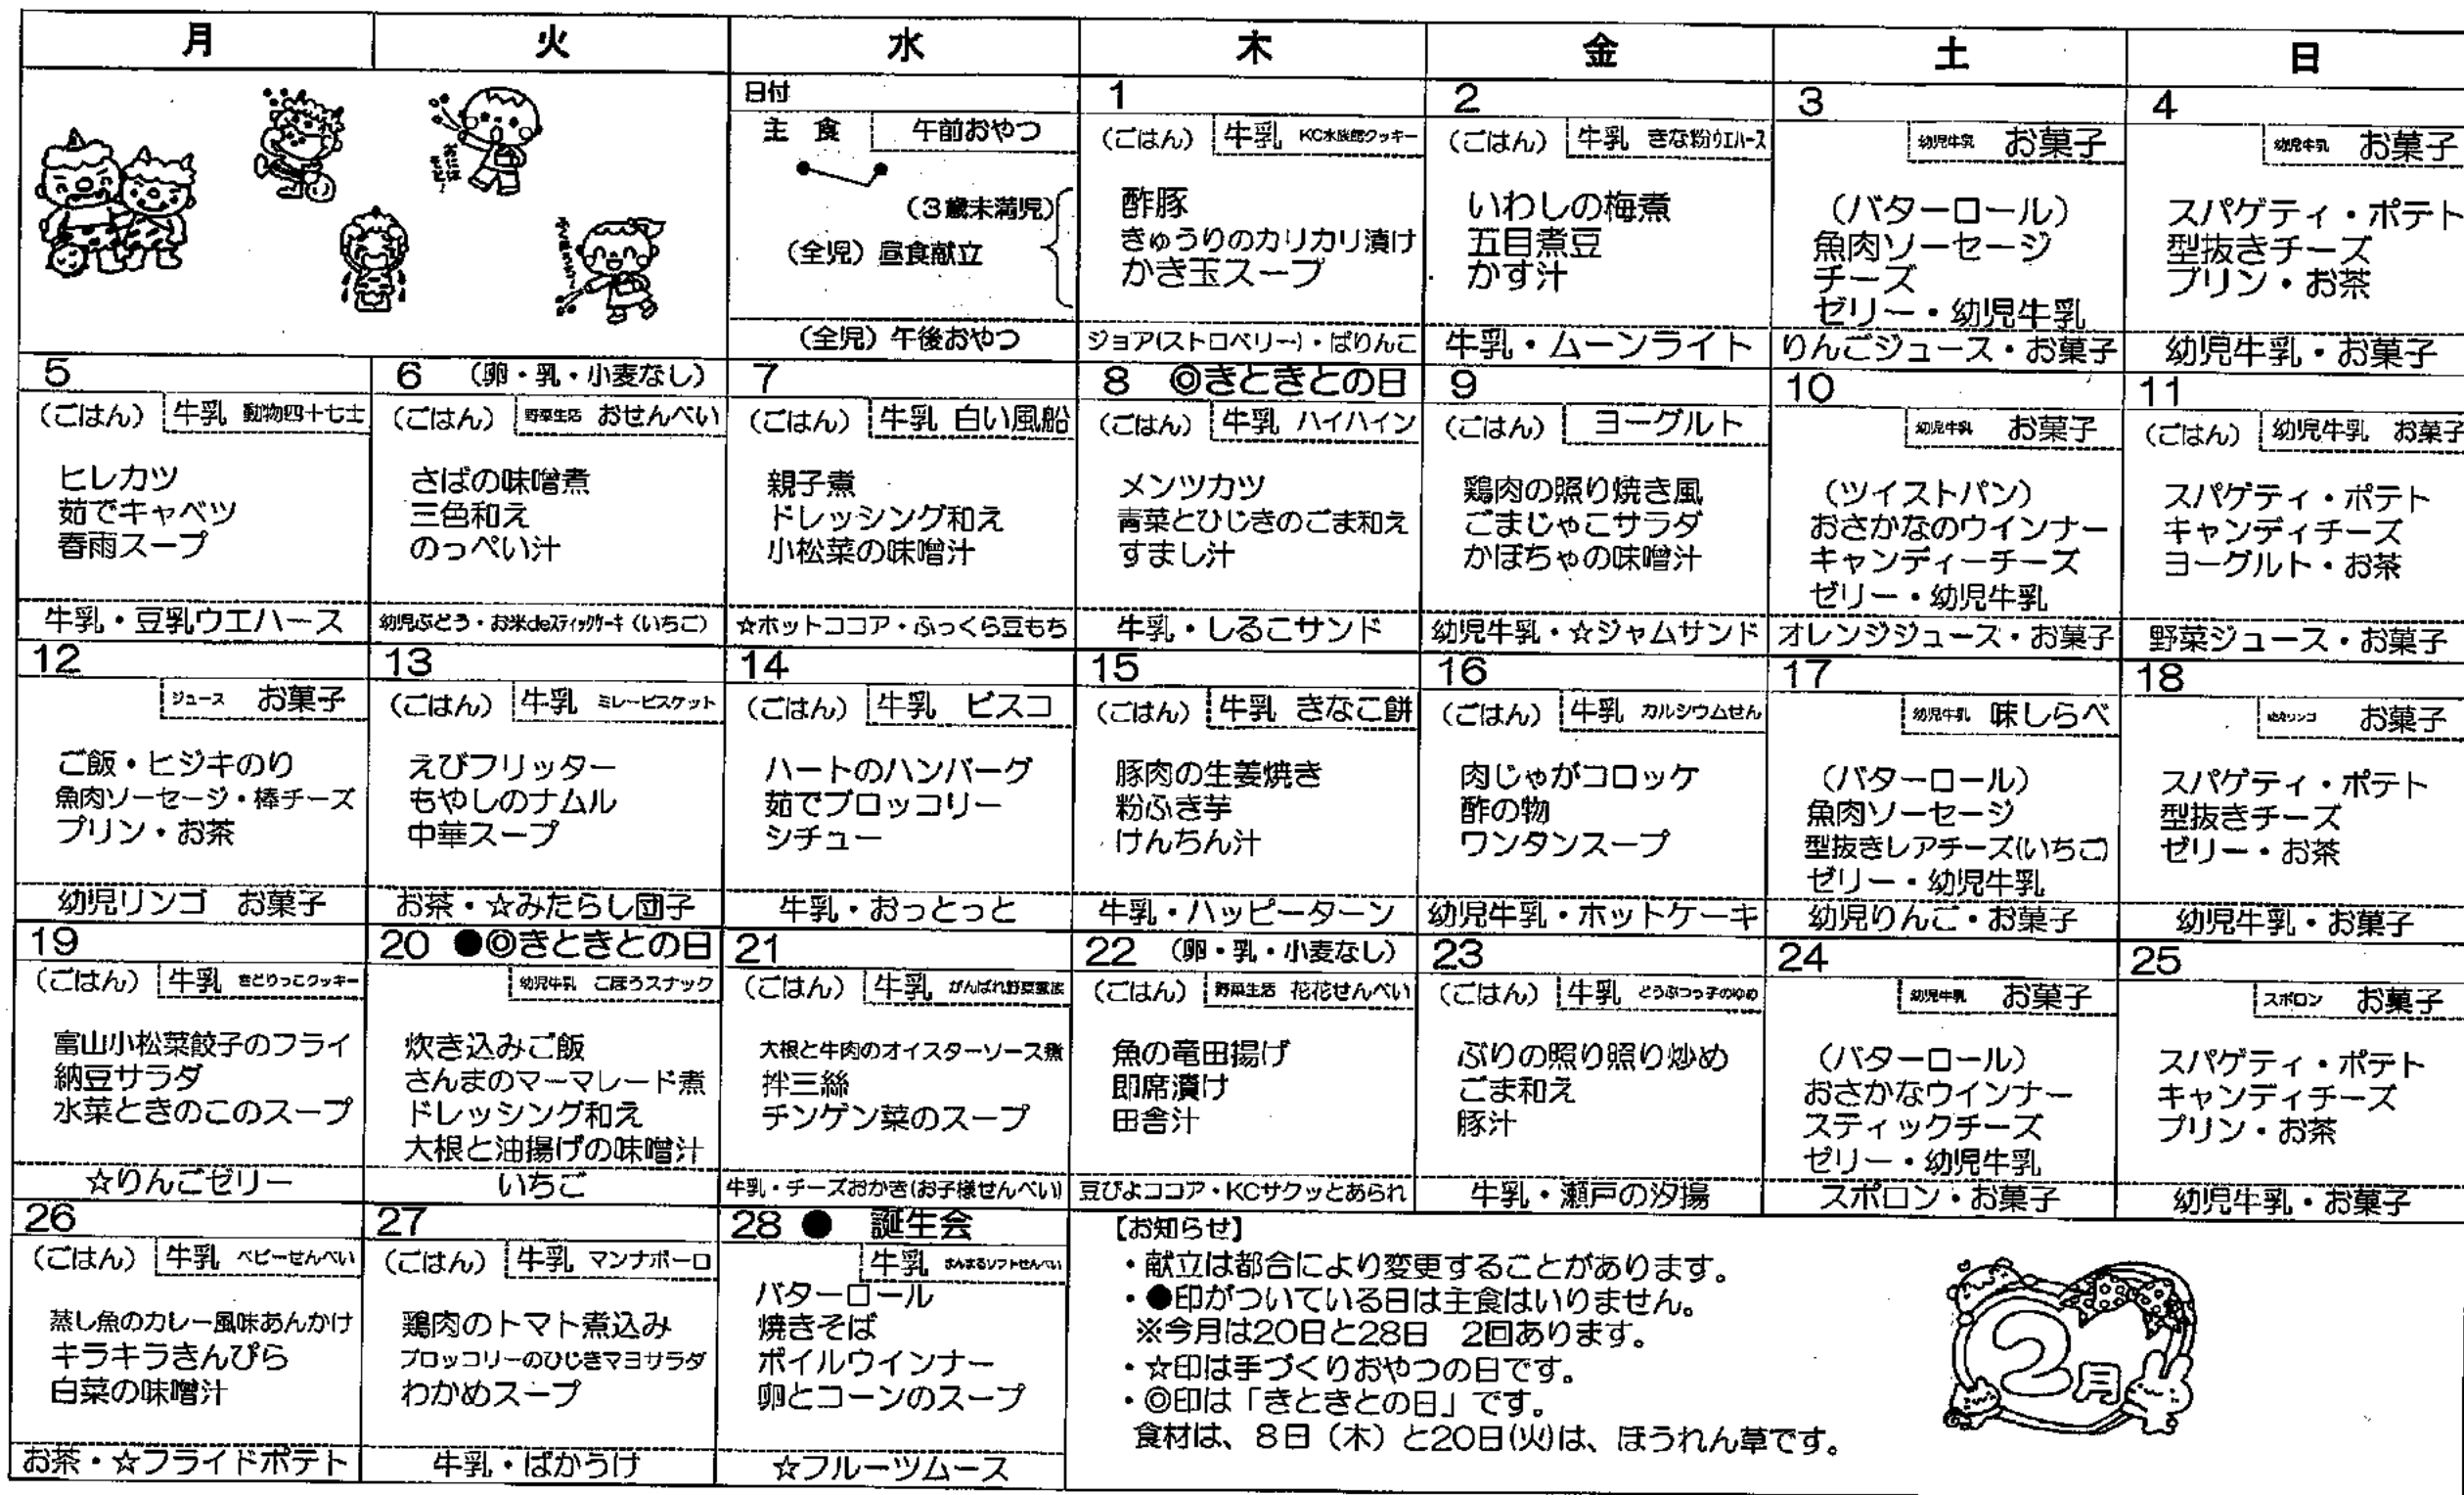 月 火 水 木 金 土 日
おにはそと!
日付
主 食 午前おやつ
(3歳未満児)
(全児) 昼食献立
(全児) 午後おやつ
1
(ごはん) 牛乳 KC水族館クッキー
酢豚
きゅうりのカリカリ漬け
かき玉スープ
ジョア(ストロベリー)・ぱりんこ
2
(ごはん) 牛乳 きな粉ウエハース
いわしの梅煮
五目煮豆
かす汁
牛乳・ムーンライト
3
幼児牛乳 お菓子
(バターロール)
魚肉ソーセージ
チーズ
ゼリー・幼児牛乳
りんごジュース・お菓子
4
幼児牛乳 お菓子
スパゲティ・ポテト
型抜きチーズ
プリン・お茶
幼児牛乳・お菓子
5
(ごはん) 牛乳 動物四十七士
ヒレカツ
茹でキャベツ
春雨スープ
牛乳・豆乳ウエハース
6 (卵・乳・小麦なし)
(ごはん) 野菜生活 おせんべい
さばの味噌煮
三色和え
のっぺい汁
幼児ぶどう・お米deスティックケーキ(いちご)
7
(ごはん) 牛乳 白い風船
親子煮
ドレッシング和え
小松菜の味噌汁
☆ホットココア・ふっくら豆もち
8 ◎きときとの日
(ごはん) 牛乳 ハイハイン
メンツカツ
青菜とひじきのごま和え
すまし汁
牛乳・しるこサンド
9
(ごはん) ヨーグルト
鶏肉の照り焼き風
ごまじゃこサラダ
かぼちゃの味噌汁
幼児牛乳・☆ジャムサンド
10
幼児牛乳 お菓子
(ツイストパン)
おさかなのウインナー
キャンディーチーズ
ゼリー・幼児牛乳
オレンジジュース・お菓子
11
(ごはん) 幼児牛乳 お菓子
スパゲティ・ポテト
キャンディチーズ
ヨーグルト・お茶
野菜ジュース・お菓子
12
ジュース お菓子
ご飯・ヒジキのり
魚肉ソーセージ・棒チーズ
プリン・お茶
幼児リンゴ お菓子
13
(ごはん) 牛乳 ミレービスケット
えびフリッター
もやしのナムル
中華スープ
お茶・☆みたらし団子
14
(ごはん) 牛乳 ビスコ
ハートのハンバーグ
茹でブロッコリー
シチュー
牛乳・おっとっと
15
(ごはん) 牛乳 きなこ餅
豚肉の生姜焼き
粉ふき芋
けんちん汁
牛乳・ハッピーターン
16
(ごはん) 牛乳 カルシウムせん
肉じゃがコロッケ
酢の物
ワンタンスープ
幼児牛乳・ホットケーキ
17
幼児牛乳 味しらべ
(バターロール)
魚肉ソーセージ
型抜きレアチーズ(いちご)
ゼリー・幼児牛乳
幼児りんご・お菓子
18
お菓子
スパゲティ・ポテト
型抜きチーズ
ゼリー・お茶
幼児牛乳・お菓子
19
(ごはん) 牛乳 きどりっこクッキー
富山小松菜餃子のフライ
納豆サラダ
水菜ときのこのスープ
☆りんごゼリー
20 ●◎きときとの日
幼児牛乳 ごぼうスナック
炊き込みご飯
さんまのマーマレード煮
ドレッシング和え
大根と油揚げの味噌汁
いちご
21
(ごはん) 牛乳 がんばれ野菜家族
大根と牛肉のオイスターソース煮
拌三絲
チンゲン菜のスープ
牛乳・チーズおかき(お子様せんべい)
22 (卵・乳・小麦なし)
(ごはん) 野菜生活 花花せんべい
魚の竜田揚げ
即席漬け
田舎汁
豆ぴよココア・KCサクッとあられ
23
(ごはん) 牛乳 どうぶつっ子のゆめ
ぶりの照り照り炒め
ごま和え
豚汁
牛乳・瀬戸の汐揚
24
幼児牛乳 お菓子
(バターロール)
おさかなウインナー
スティックチーズ
ゼリー・幼児牛乳
スポロン・お菓子
25
スポロン お菓子
スパゲティ・ポテト
キャンディチーズ
プリン・お茶
幼児牛乳・お菓子
26
(ごはん) 牛乳 ベビーせんべい
蒸し魚のカレー風味あんかけ
キラキラきんぴら
白菜の味噌汁
お茶・☆フライドポテト
27
(ごはん) 牛乳 マンナボーロ
鶏肉のトマト煮込み
ブロッコリーのひじきマヨサラダ
わかめスープ
牛乳・ばかうけ
28 ● 誕生会
牛乳 まんまるソフトせんべい
バターロール
焼きそば
ボイルウインナー
卵とコーンのスープ
☆フルーツムース
【お知らせ】
・献立は都合により変更することがあります。
・●印がついている日は主食はいりません。
※今月は20日と28日 2回あります。
・☆印は手づくりおやつの日です。
・◎印は「きときとの日」です。
食材は、8日(木)と20日(火)は、ほうれん草です。
2月